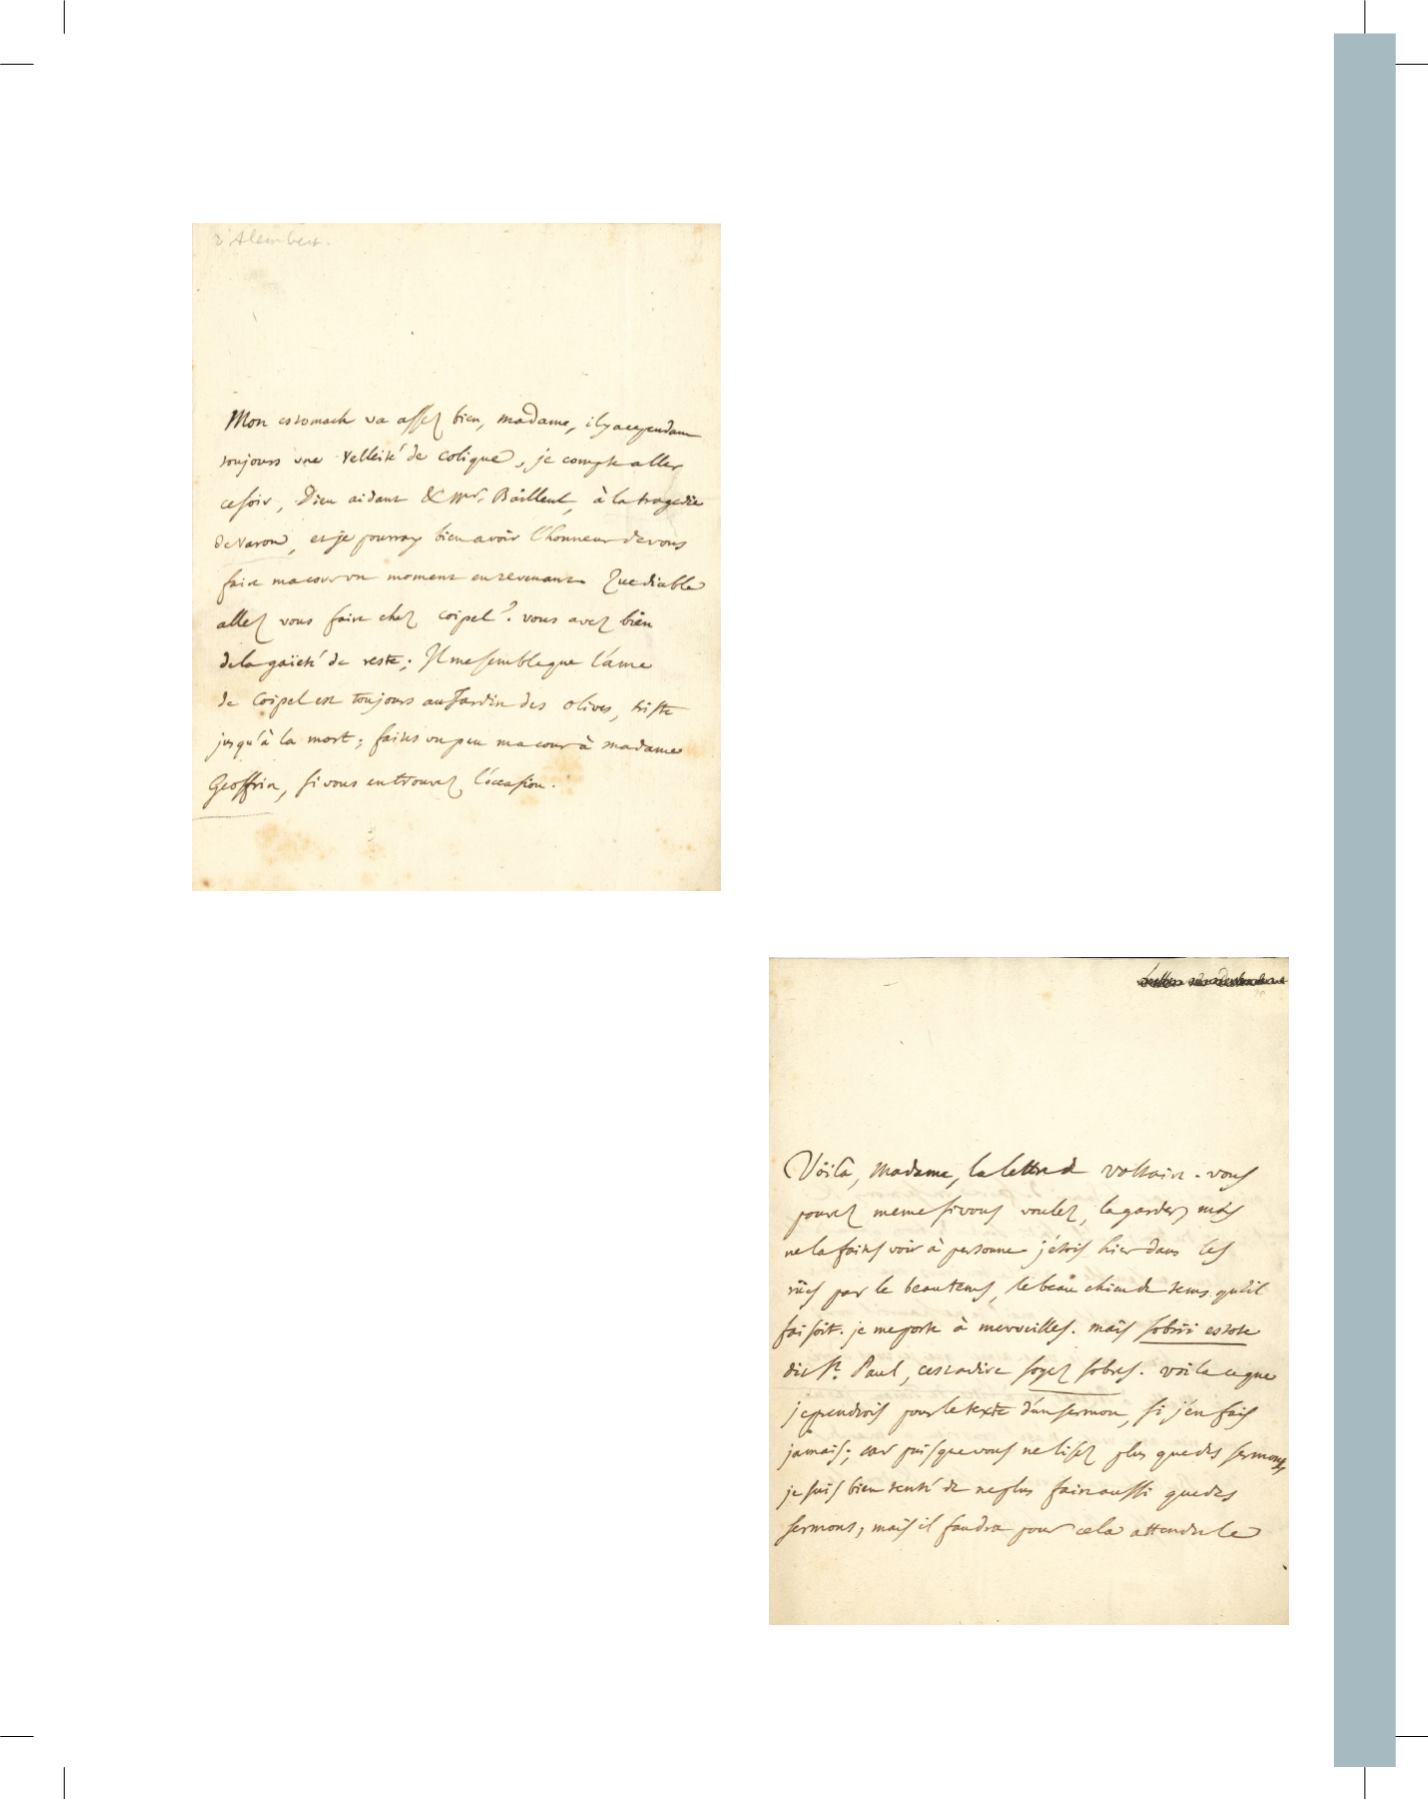 d'Alembert.
Mon estomach va assez bien, madame, il y a cependant
toujours une velleité de colique, je compte aller
ce soir, Dieu aidant & Mr. Bailleul, à la tragedie
de Varon, et je pourray bien avoir l'honneur de vous
faire ma cour un moment en revenant. Que diable
allez vous faire chez Coipel? vous avez bien
de la gaïeté de reste; Il me semble que l'ame
de Coipel est toujours au Jardin des olives, triste
jusqu'à la mort; faites un peu ma cour à madame
Geoffrin, si vous en trouvez l'occasion.
Voila, Madame, la lettre de Voltaire. vous
pouvez meme si vous voulez, la garder, mais
ne la faites voir à personne j'etois hier dans les
rües par le beau tems, le beau chien de tems qu'il
faisoit. je me porte à merveilles. mais sobrii estote
dit St. Paul, cest a dire soyez sobres. voila ce que
je prendrois pour le texte d'un sermon, si j'en fais
jamais; car puisque vous ne lisez plus que des sermons,
je suis bien tenté de ne plus faire aussi que des
sermons; mais il faudra pour cela attendre le